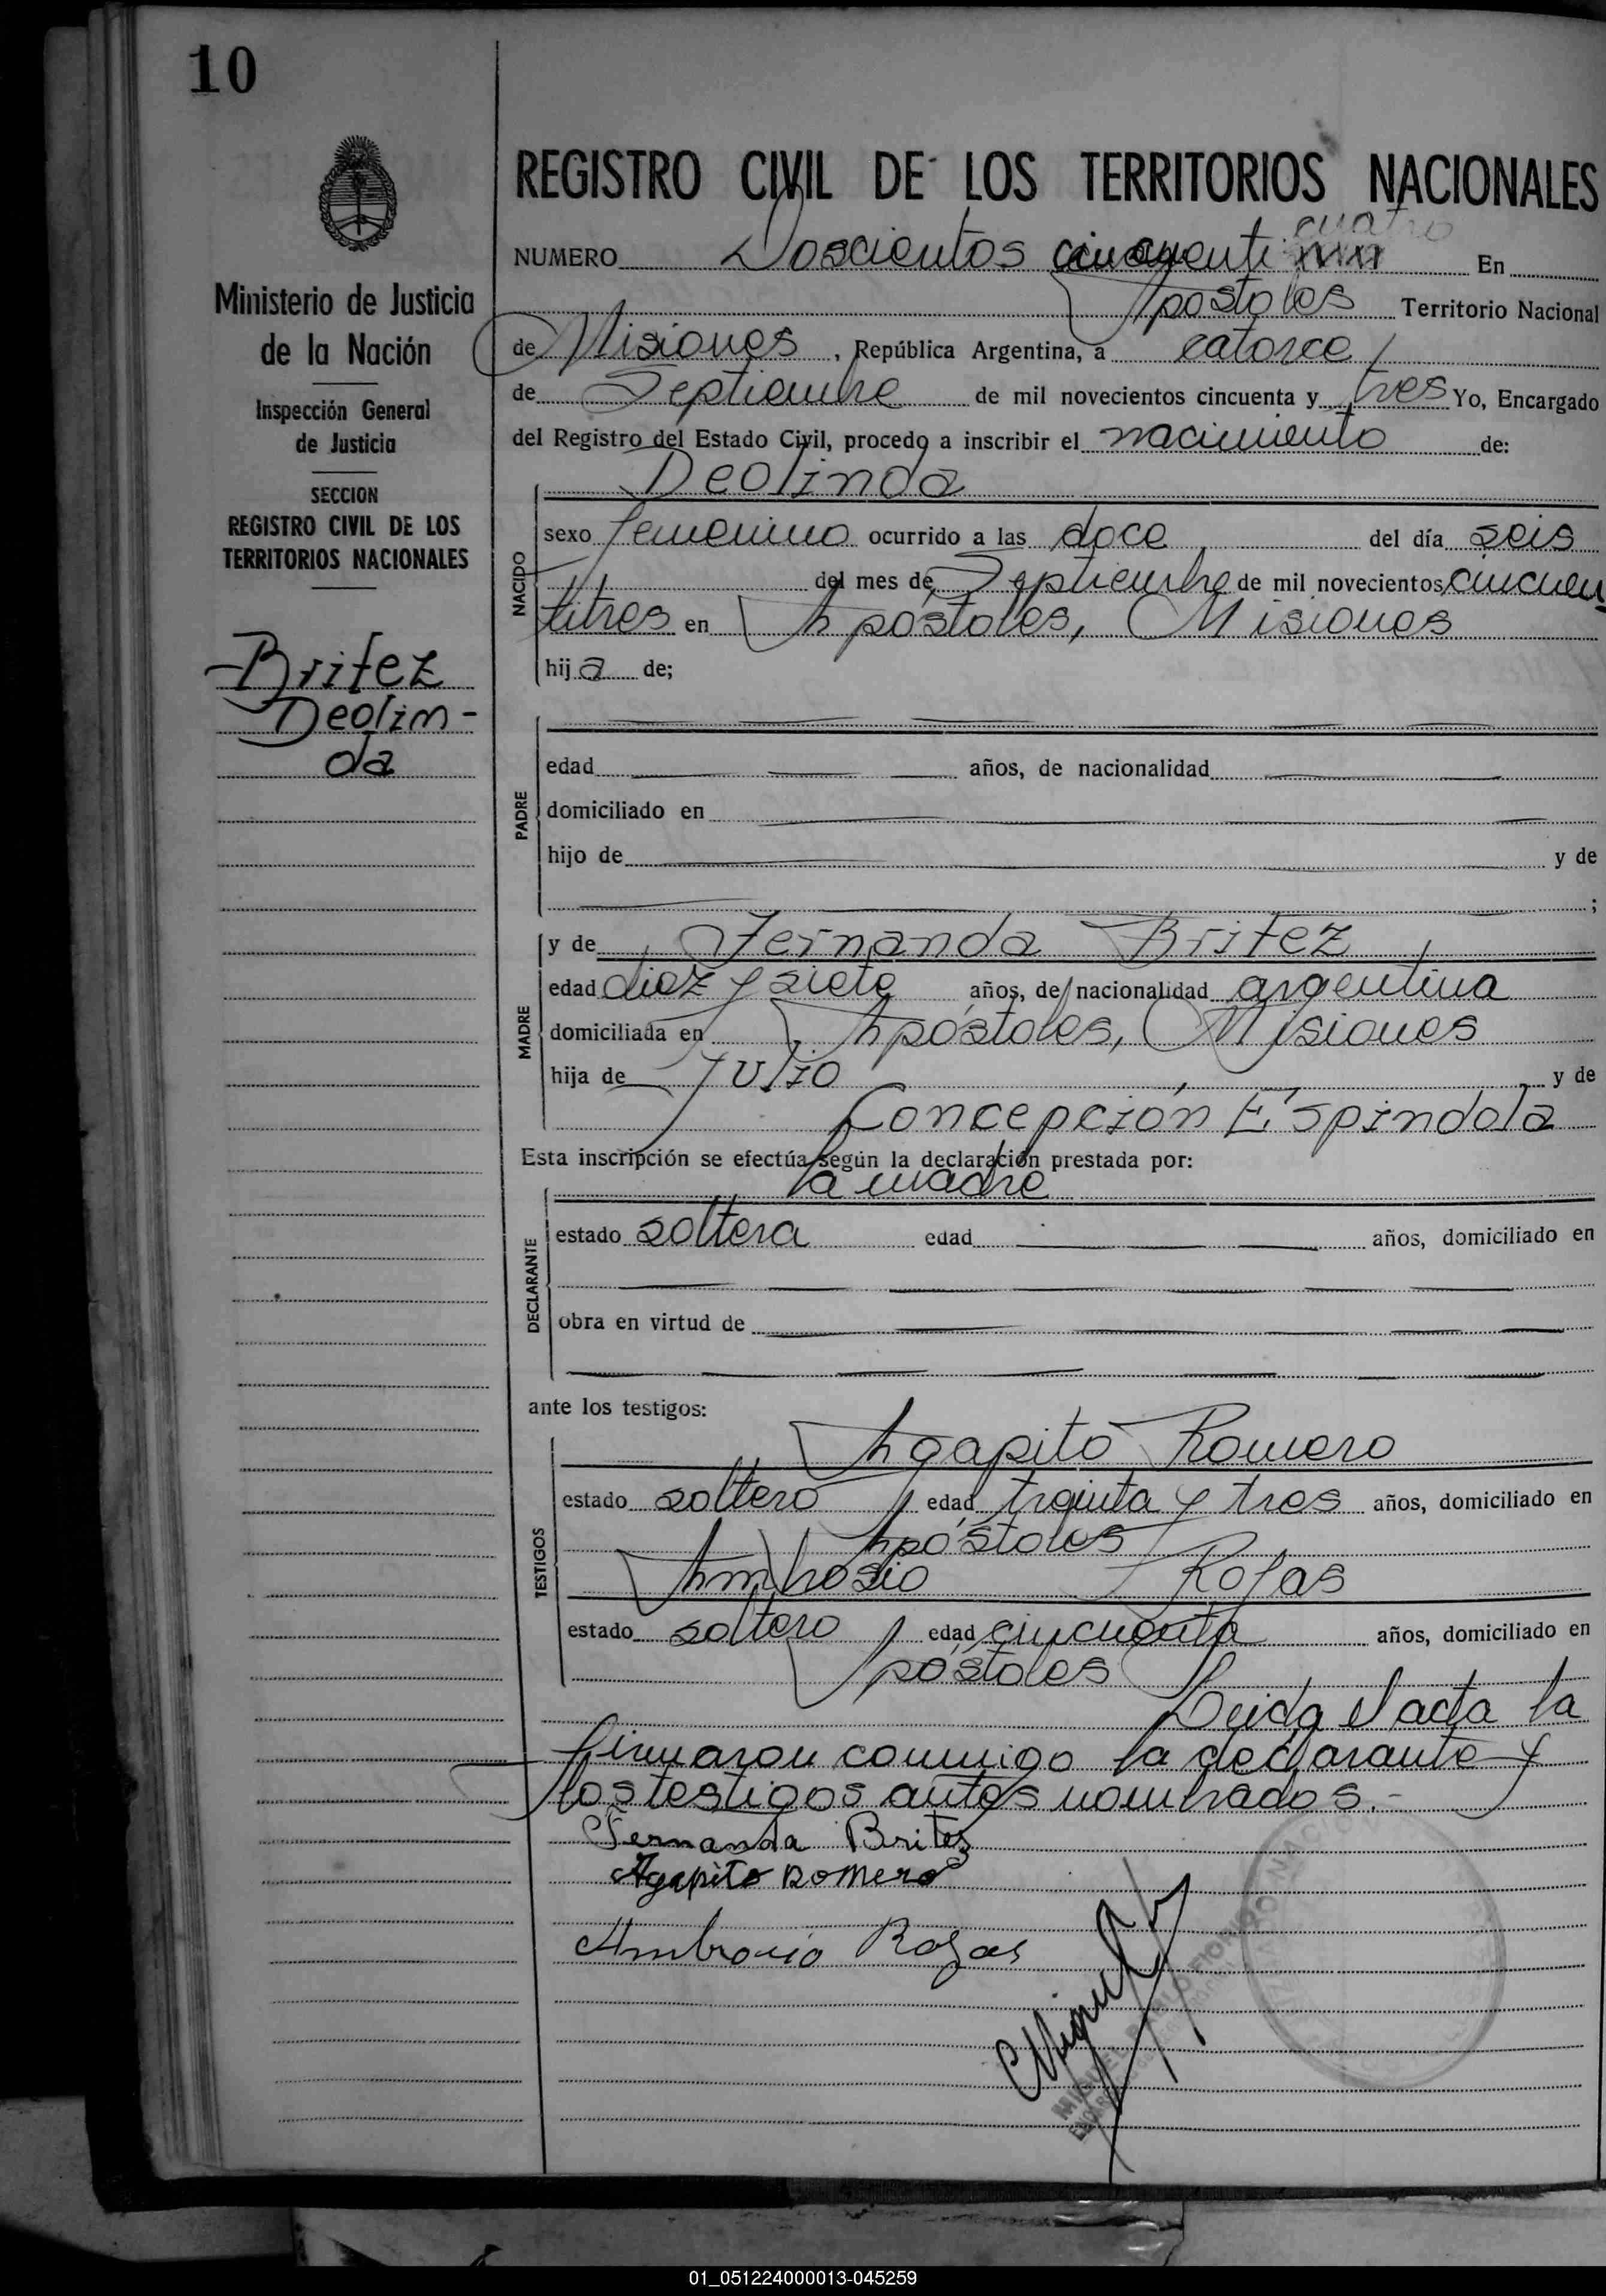 10
Ministerio de Justicia
de la Nación
Inspección General
de Justicia
SECCION
REGISTRO CIVIL DE LOS
TERRITORIOS NACIONALES
Britez
Deolin-
da
REGISTRO CIVIL DE LOS TERRITORIOS NACIONALES
cuatro
NUMERO Doscientos cincuenti En
Apostoles Territorio Nacional
de Misiones, República Argentina, a catorce
de Septiembre de mil novecientos cincuenta y tres Yo, Encargado
del Registro del Estado Civil, procedo a inscribir el nacimiento de:
Deolinda
NACIDO
sexo femenino ocurrido a las doce del día seis
del mes de Septiembre de mil novecientos cincuen
titres en Apóstoles, Misiones
hija de;
PADRE
edad años, de nacionalidad
domiciliado en
hijo de y de
;
MADRE
y de Fernanda Britez
edad diez y siete años, de nacionalidad argentina
domiciliada en Apóstoles, Misiones
hija de Julio y de
Concepción Espíndola
Esta inscripción se efectúa según la declaración prestada por:
la madre
DECLARANTE
estado soltera edad años, domiciliado en
obra en virtud de
ante los testigos:
TESTIGOS
Agapito Romero
estado soltero edad treinta y tres años, domiciliado en
Apóstoles
Ambrosio Rojas
estado soltero edad cincuenta años, domiciliado en
Apóstoles Leida el acta la
firmaron conmigo la declarante y
los testigos antes nombrados.-
Fernanda Britez
Agapito Romero
Ambrosio Rojas
Miguel
01_051224000013-045259